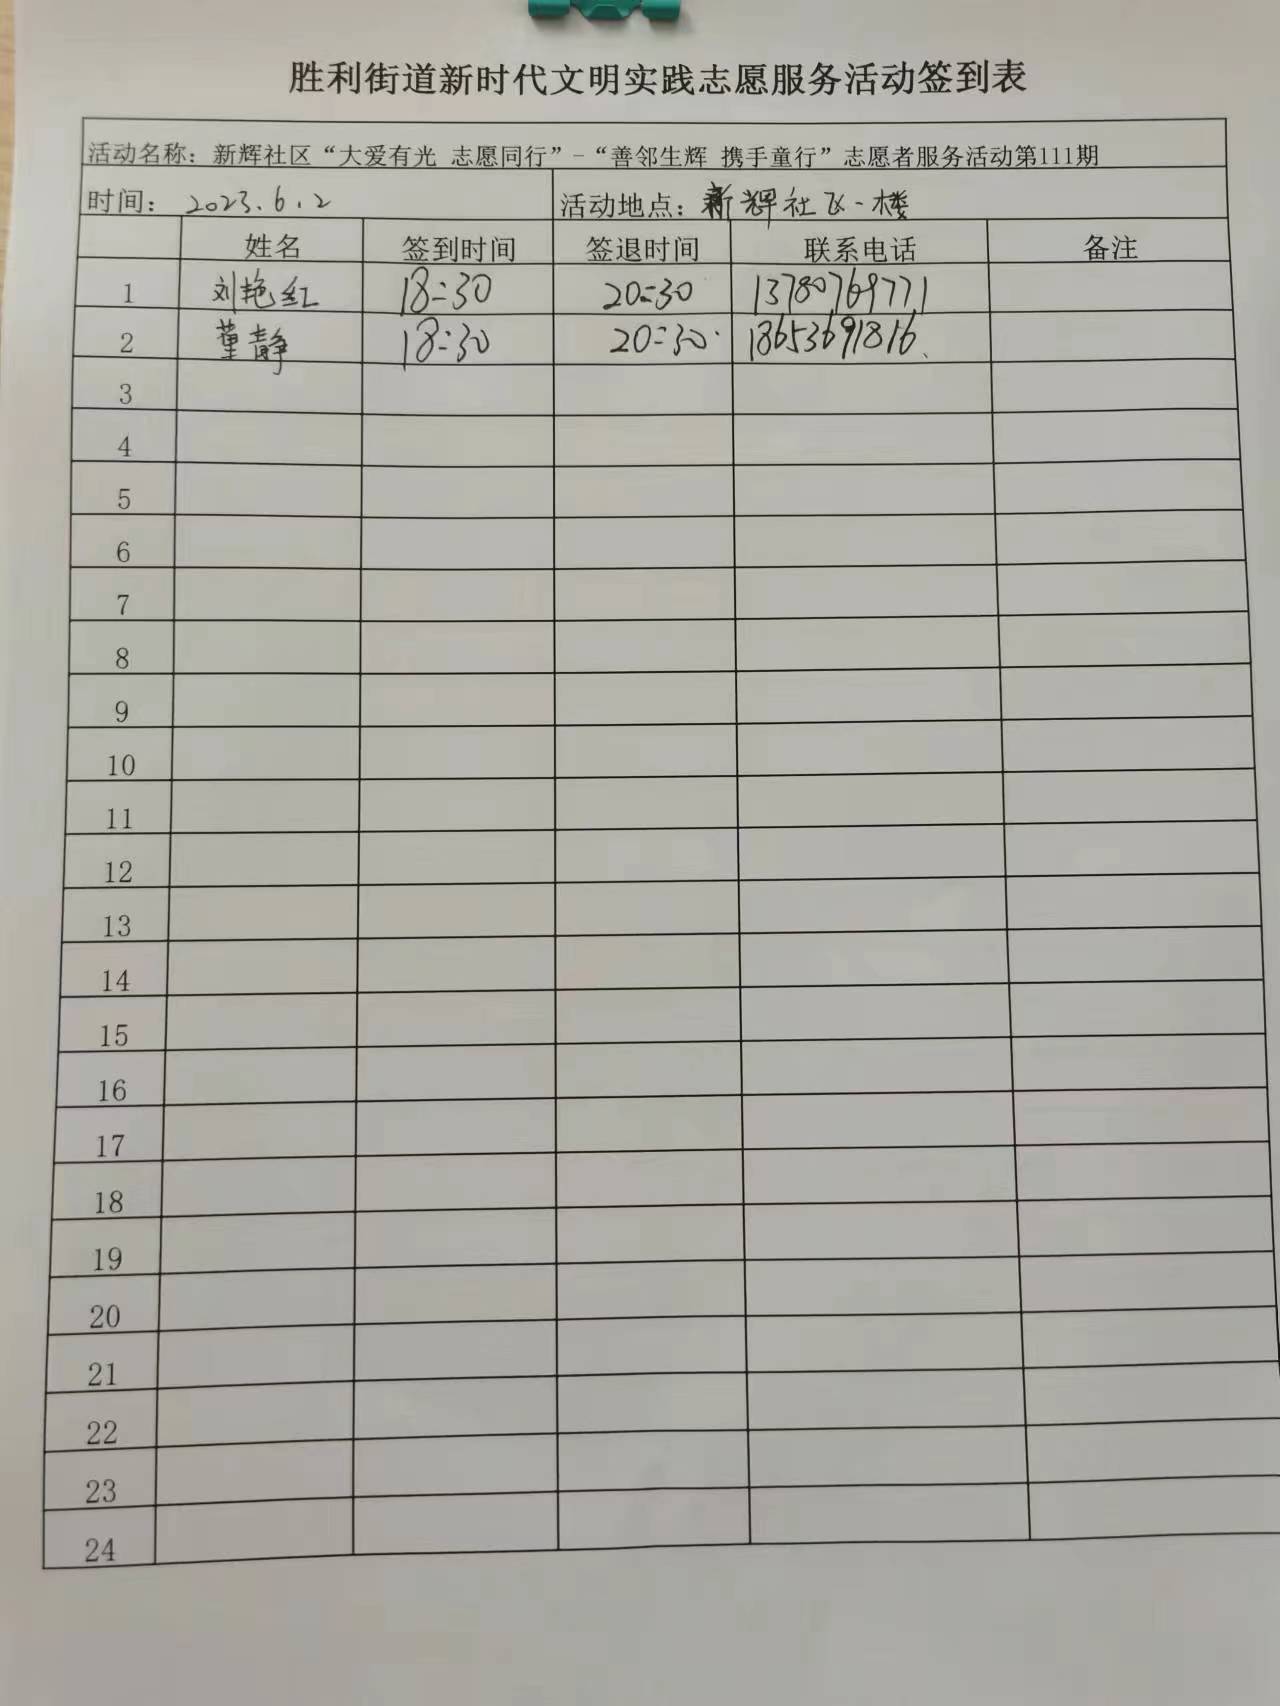 胜利街道新时代文明实践志愿服务活动签到表
活动名称：新辉社区“大爱有光 志愿同行”-“善邻生辉 携手童行”志愿者服务活动第111期
时间： 2023.6.2 活动地点：新辉社区一楼
姓名 签到时间 签退时间 联系电话 备注
1 刘艳红 18:30 20:30 13780769771
2 董静 18:30 20:30 18653691816
3
4
5
6
7
8
9
10
11
12
13
14
15
16
17
18
19
20
21
22
23
24